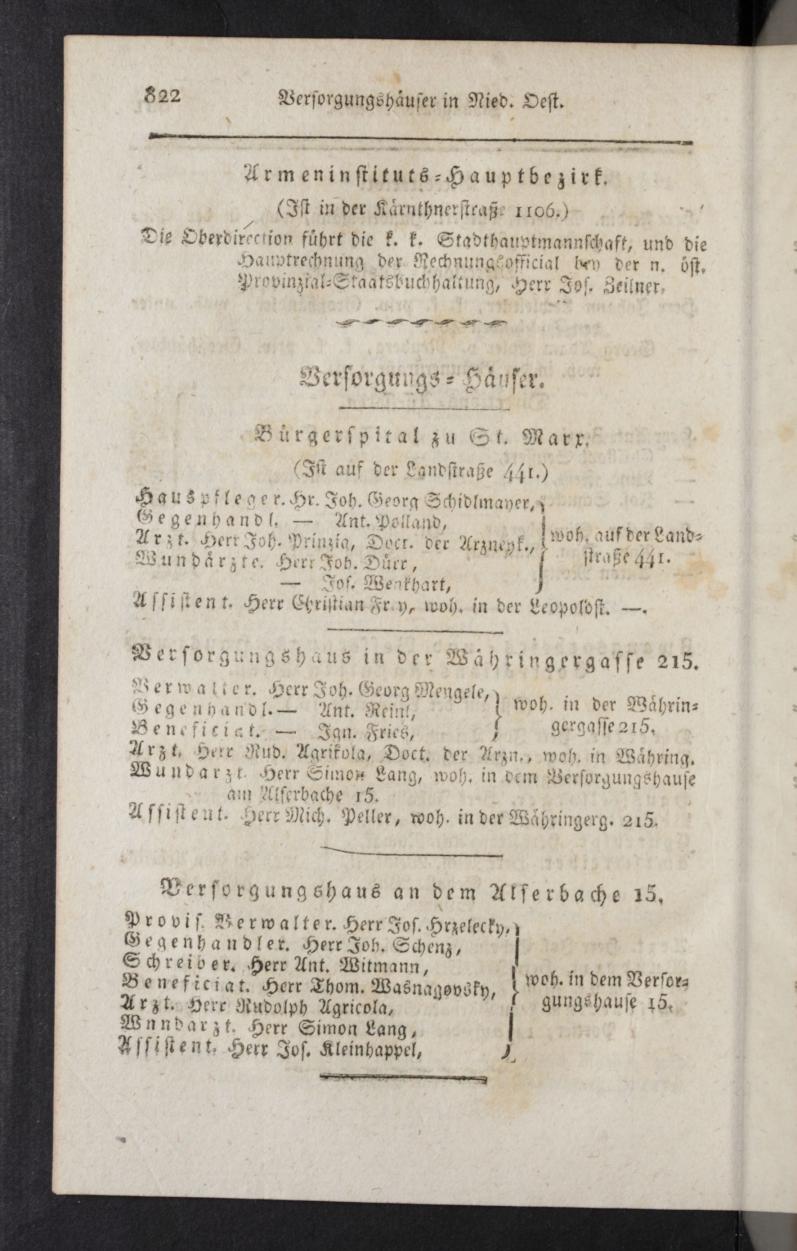 822 Versorgungshäuser in Nied. Oest.
Armeninstituts-Hauptbezirk.
(Ist in der Kärnthnerstraße 1106.)
Die Oberdirection führt die k. k. Stadthauptmannschaft, und die
Hauptrechnung der Rechnungsofficial bey der n. öst.
Provinzial-Staatsbuchhaltung, Herr Jos. Zeilner.
Versorgungs-Häuser.
Bürgerspital zu St. Marx.
(Ist auf der Landstraße 441.)
Hauspfleger. Hr. Joh. Georg Schidlmayer,
Gegenhandl. — Ant. Polland,
Arzt. Herr Joh. Prinzia, Doct. der Arzneyk., woh. auf der Land-
Wundärzte. Herr Joh. Dürr, straße 441.
— Jos. Wenkhart,
Assistent. Herr Christian Frey, woh. in der Leopoldst. —.
Versorgungshaus in der Währingergasse 215.
Verwalter. Herr Joh. Georg Mengele,
Gegenhandl. — Ant. Reinl, woh. in der Währin-
Beneficiat. — Ign. Fries, gergasse 215.
Arzt. Herr Rud. Agrikola, Doct. der Arzn., woh. in Währing.
Wundarzt. Herr Simon Lang, woh. in dem Versorgungshause
am Alserbache 15.
Assistent. Herr Mich. Peller, woh. in der Währingerg. 215.
Versorgungshaus an dem Alserbache 15.
Provis. Verwalter. Herr Jos. Hrzelecky,
Gegenhandler. Herr Joh. Schenz,
Schreiber. Herr Ant. Witmann,
Beneficiat. Herr Thom. Wasnagovsky, woh. in dem Versor-
Arzt. Herr Rudolph Agricola, gungshause 15.
Wnndarzt. Herr Simon Lang,
Assistent. Herr Jos. Kleinhappel,